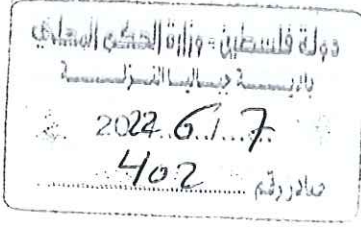 دولة فلسطين - وزارة الحكم المحلي
بلديـــــة جبـــاليـــا النـــزلـــــة
2022 6 / 7
صادر رقم 402